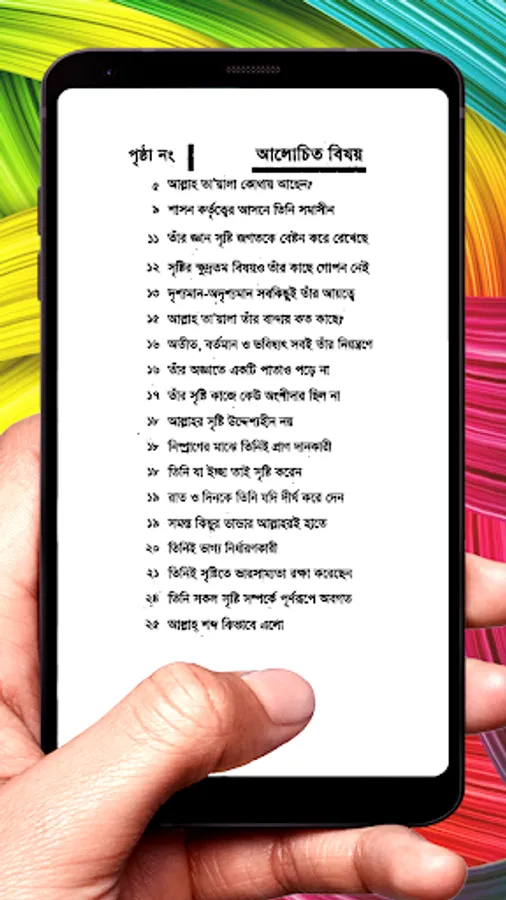 পৃষ্ঠা নং আলোচিত বিষয়
৫ আল্লাহ তা'য়ালা কোথায় আছেন?
৯ শাসন কর্তৃত্বের আসনে তিনি সমাসীন
১১ তাঁর জ্ঞান সৃষ্টি জগতকে বেষ্টন করে রেখেছে
১২ সৃষ্টির ক্ষুদ্রতম বিষয়ও তাঁর কাছে গোপন নেই
১৩ দৃশ্যমান-অদৃশ্যমান সবকিছুই তাঁর আয়ত্বে
১৫ আল্লাহ তা'য়ালা তাঁর বান্দার কত কাছে?
১৬ অতীত, বর্তমান ও ভবিষ্যৎ সবই তাঁর নিয়ন্ত্রণে
১৬ তাঁর অজ্ঞাতে একটি পাতাও পড়ে না
১৭ তাঁর সৃষ্টি কাজে কেউ অংশীদার ছিল না
১৮ আল্লাহর সৃষ্টি উদ্দেশ্যহীন নয়
১৮ নিষ্প্রাণের মাঝে তিনিই প্রাণ দানকারী
১৮ তিনি যা ইচ্ছা তাই সৃষ্টি করেন
১৯ রাত ও দিনকে তিনি যদি দীর্ঘ করে দেন
১৯ সমস্ত কিছুর ভান্ডার আল্লাহরই হাতে
২০ তিনিই ভাগ্য নির্ধারণকারী
২১ তিনিই সৃষ্টিতে ভারসাম্যতা রক্ষা করেছেন
২৪ তিনি সকল সৃষ্টি সম্পর্কে পূর্ণরূপে অবগত
২৫ আল্লাহ্ শব্দ কিভাবে এলো